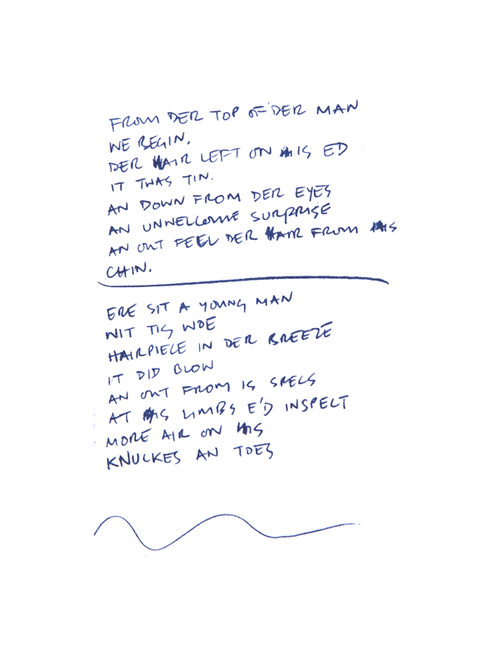 FROM DER TOP OF DER MAN
WE BEGIN.
DER HAIR LEFT ON HIS ED
IT TWAS TIN.
AN DOWN FROM DER EYES
AN UNWELCOME SURPRISE
AN OUT FEEL DER HAIR FROM HIS
CHIN.
ERE SIT A YOUNG MAN
WIT TIS WOE
HAIRPIECE IN DER BREEZE
IT DID BLOW
AN OUT FROM IS SPECS
AT HIS LIMBS E'D INSPECT
MORE AIR ON HIS
KNUCKES AN TOES